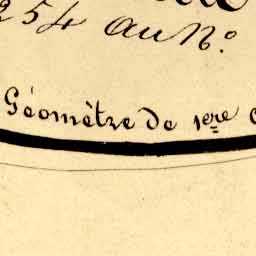 254 au N°
Géomètre de 1ere